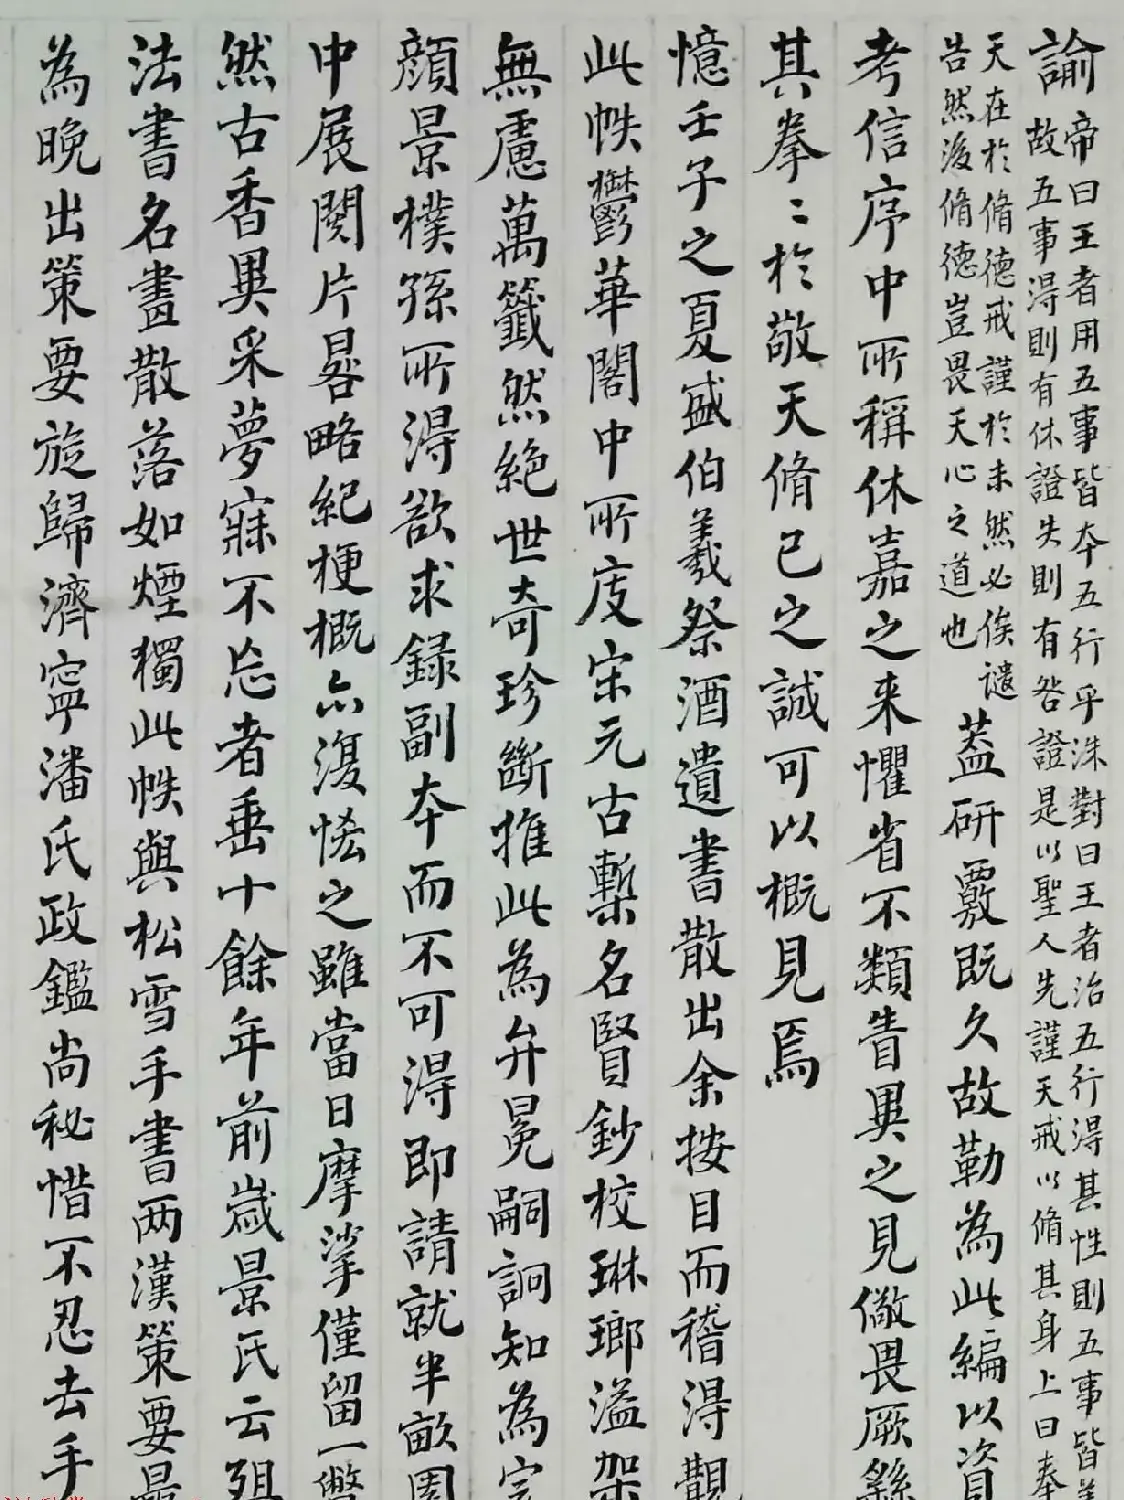 諭
帝曰王者用五事皆本五行乎洙對曰王者治五行得其性則五事皆
故五事得則有休證失則有咎證是以聖人先謹天戒以脩其身上曰奉
天在於脩德戒謹於未然必俟譴
告然後脩德豈畏天心之道也
蓋研覈既久故勒為此編以資
考信序中所稱休嘉之来懼省不類眚異之見儆畏厥繇
其拳〻於敬天脩己之誠可以概見焉
憶壬子之夏盛伯羲祭酒遺書散出余按目而稽得觀
此帙鬱華閣中所庋宋元古槧名賢鈔校琳瑯溢架
無慮萬籤然絶世奇珍斷推此為弁冕嗣詗知為完
顔景樸孫所得欲求録副本而不可得即請就半畝園
中展閲片晷略紀梗概亦復恡之雖當日摩挲僅留一瞥
然古香異采夢寐不忘者垂十餘年前歳景氏云殂
法書名畫散落如煙獨此帙與松雪手書两漢策要最
為晚出策要旋歸濟寧潘氏政鑑尚秘惜不忍去手